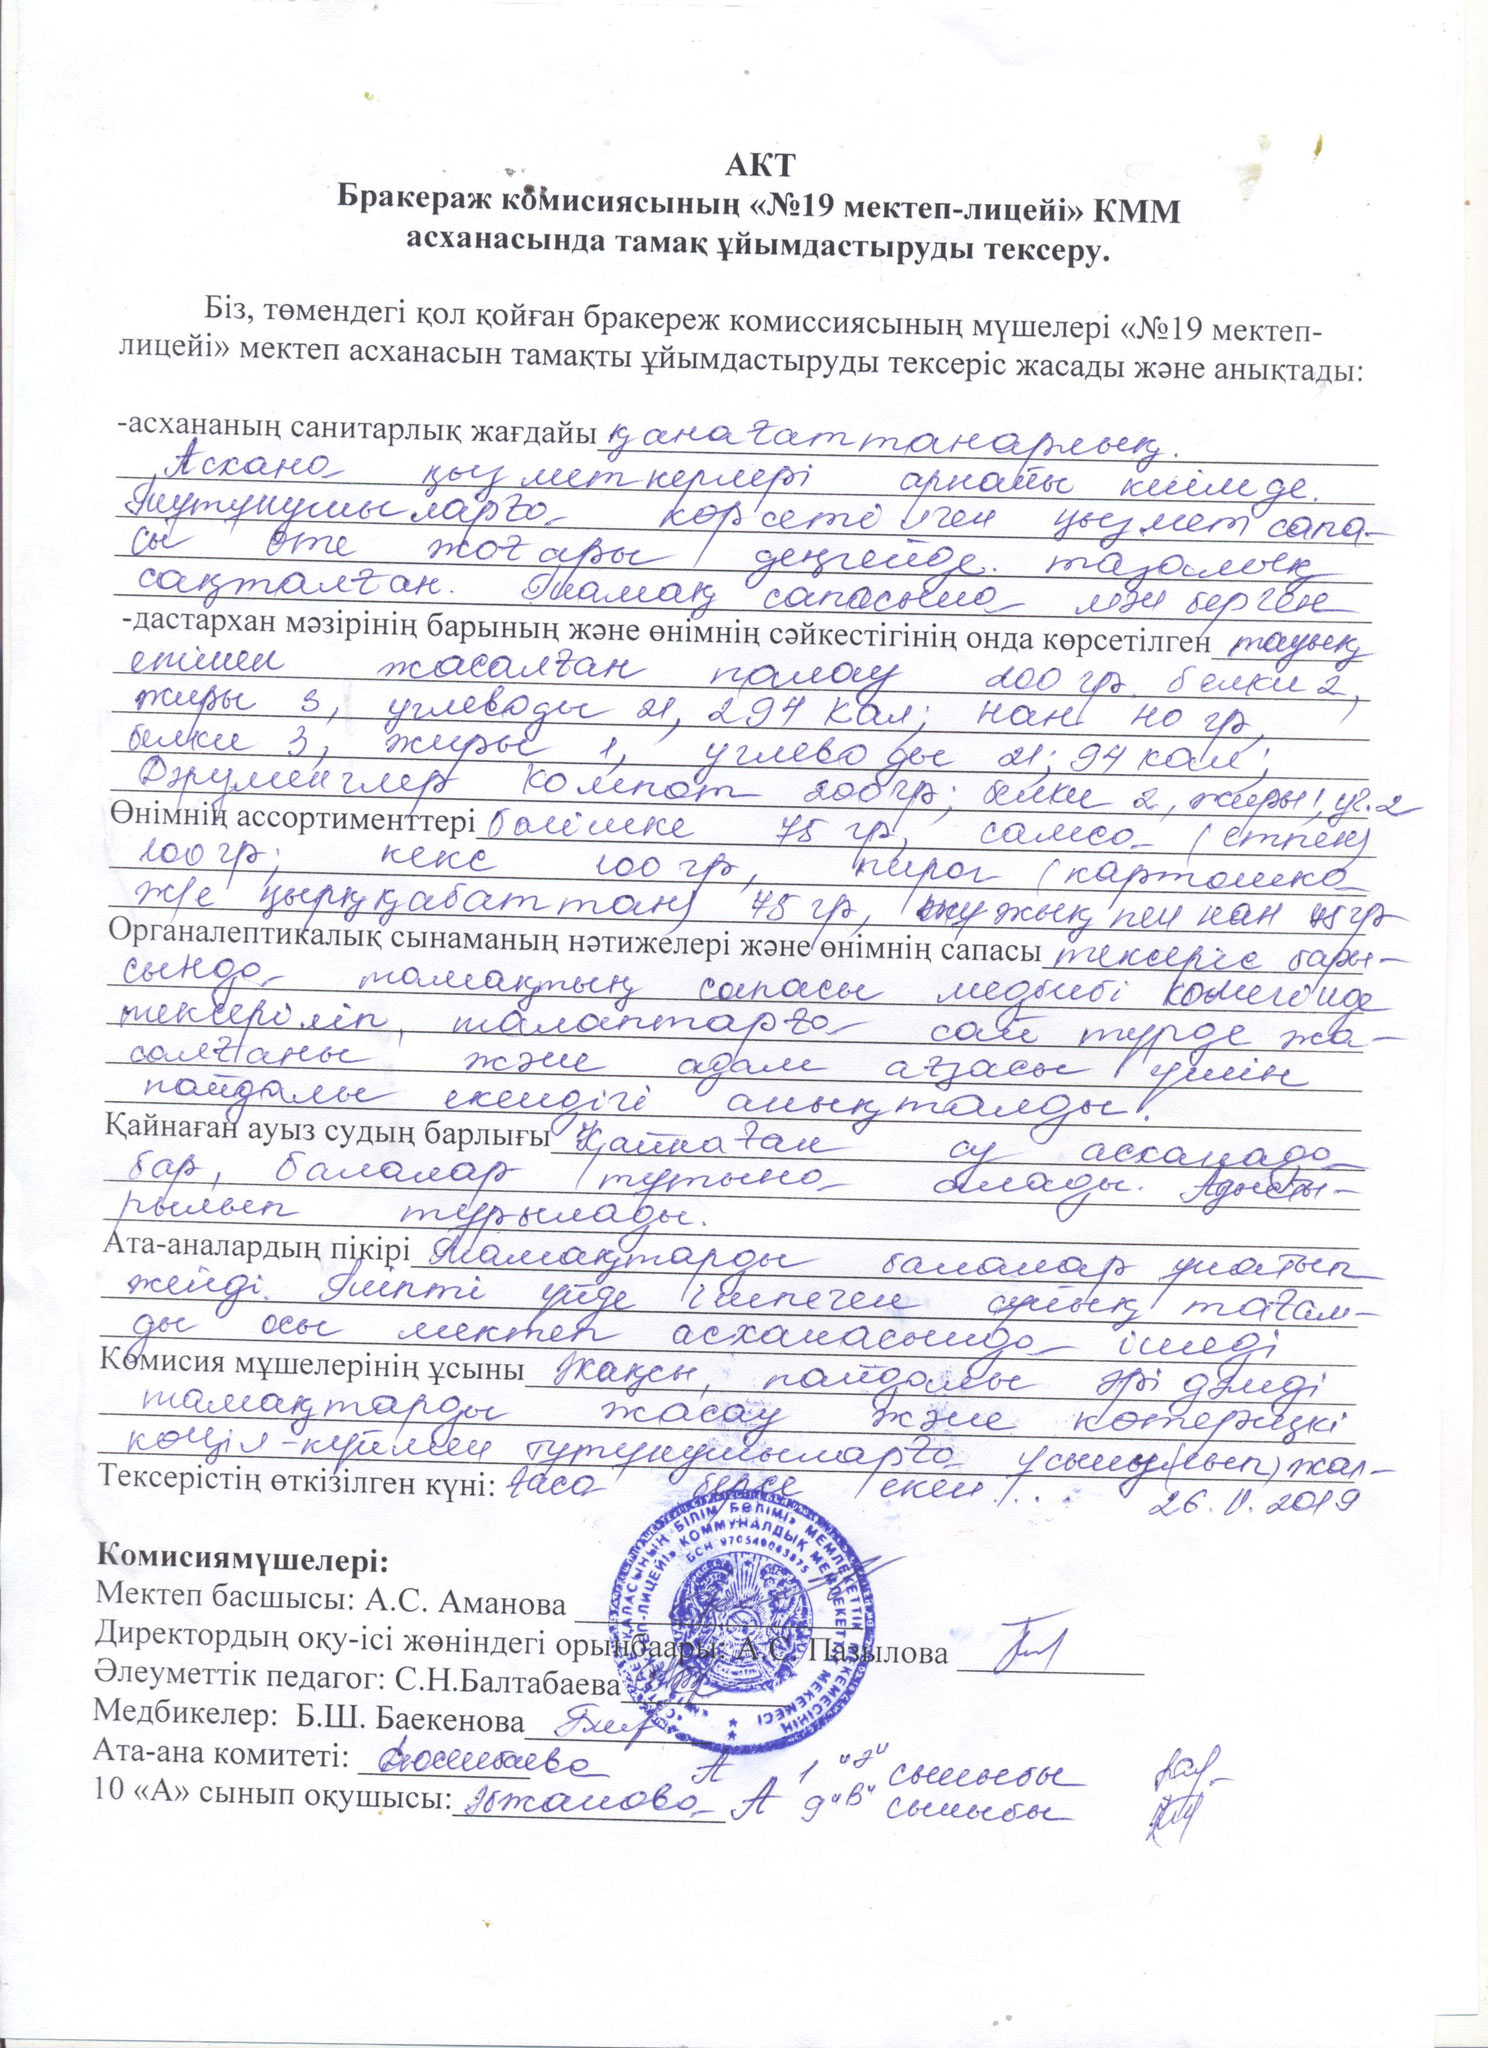 АКТ
Бракераж комисиясының «№19 мектеп-лицейі» КММ
асханасында тамақ ұйымдастыруды тексеру.
Біз, төмендегі қол қойған бракереж комиссиясының мүшелері «№19 мектеп-
лицейі» мектеп асханасын тамақты ұйымдастыруды тексеріс жасады және анықтады:
-асхананың санитарлық жағдайы қанағаттанарлық.
Асхана қызметкерлері арнайы киімде.
Тұтұнушыларға көрсетілген қызмет сапа-
сы өте жоғары деңгейде. тазалық
сақталған. Тамақ сапасына мән берген
-дастархан мәзірінің барының және өнімнің сәйкестігінің онда көрсетілген тауық
етінен жасалған палау 200 гр. белки 2,
жиры 3, углеводы 21, 294 кал; нан 40 гр,
белки 3, жиры 1, углеводы 21; 94 кал;
Дәруменглер компот 200 гр; белки 2, жиры 1, уг. 2
Өнімнің ассортименттері бәліжке 75 гр, самса (етпен)
100 гр; кекс 100 гр, пирог (картошка
ж/е қырыққабаттан) 75 гр, шұжық пен нан 75 гр
Органалептикалық сынаманың нәтижелері және өнімнің сапасы тексеріс бары-
сында тамақтың сапасы медбибі көмегінде
тексеріліп, талаптарға сай түрде жа-
салғаны және адам ағзасы үшін
пайдалы екендігі анықталды.
Қайнаған ауыз судың барлығы Қайнаған су асханада
бар, балалар тұтына алады. Ауысты-
рылып тұрылады.
Ата-аналардың пікірі Тамақтарды балалар ұнатып
жейді. Тіпті үйде ішпеген сұйық тағам-
ды осы мектеп асханасында ішеді
Комисия мүшелерінің ұсыны Жақсы, пайдалы әрі дәмді
тамақтарды жасау және көтеріңкі
көңіл-күймен тұтұнушыларға ұсыну(сып) жал-
Тексерістің өткізілген күні: ғаса берсе екен... 26.II.2019
Комисиямүшелері:
Мектеп басшысы: А.С. Аманова
Директордың оқу-ісі жөніндегі орынбаары: А.С. Пазылова
Әлеуметтік педагог: С.Н.Балтабаева
Медбикелер: Б.Ш. Баекенова
Ата-ана комитеті: А 1 "Ә" сыныбы
10 «А» сынып оқушысы: Әбжанова А 9 "В" сыныбы
БСН 970540003875